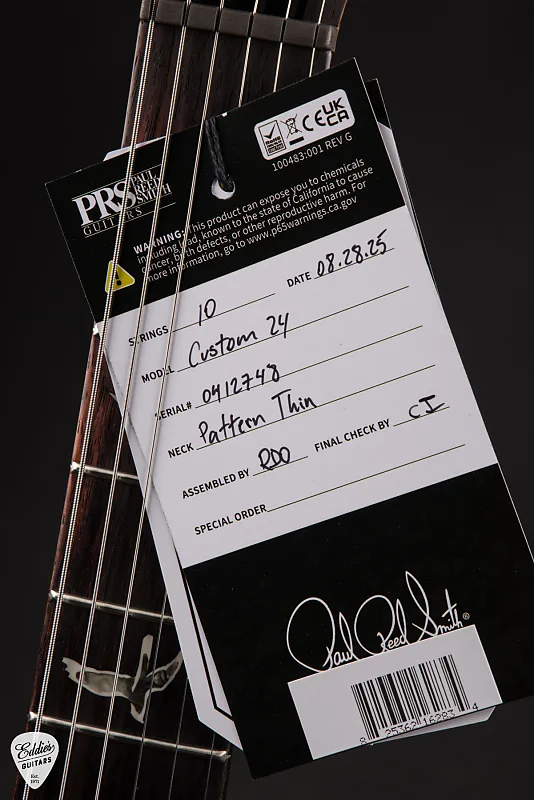 UK
CE CA
100483:001 REV G
PRS PAUL REED SMITH
GUITARS
WARNING: This product can expose you to chemicals
including lead, known to the state of California to cause
cancer, birth defects, or other reproductive harm. For
more information, go to www.p65warnings.ca.gov
STRINGS 10 DATE 08.28.25
MODEL Custom 24
SERIAL# 0412748
NECK Pattern Thin
ASSEMBLED BY RDO FINAL CHECK BY CI
SPECIAL ORDER
Paul Reed Smith®
8 25362 16283 4
Eddie's
GUITARS
Est.
1971